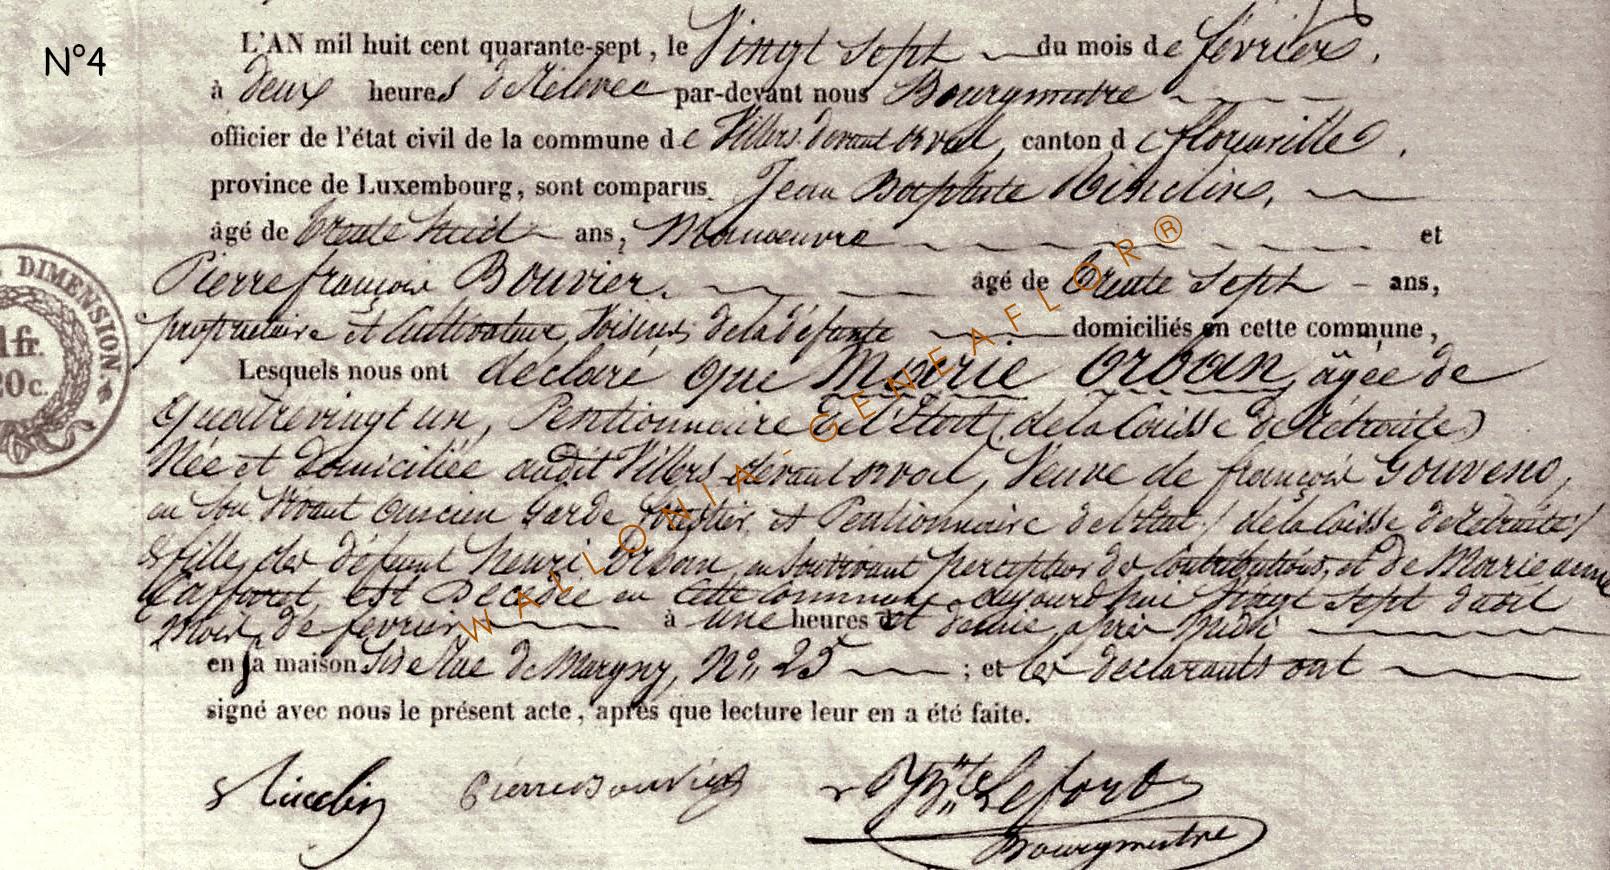 N°4
L'AN mil huit cent quarante-sept, le Vingt Sept du mois de février,
à deux heures de Relevée par-devant nous Bourgmestre
officier de l'état civil de la commune de Villers devant orval, canton de florenville,
province de Luxembourg, sont comparus Jean Baptiste
âgé de trente huit ans, Manoeuvre et
Pierre françois Bouvier, âgé de trente Sept ans,
propriétaire et Cultivateur, Voisins de la défunte domiciliés en cette commune,
Lesquels nous ont déclaré que Marie Orban, âgée de
quatrevingt un, Pentionnaire de l'Etat (de la Caisse de Rétraite)
Née et domiciliée audit Villers devant orval, Veuve de françois Gouveno,
en Son Vivant Ancien Garde forestier et Pentionnaire de l'état (de la Caisse de retraite)
& fille de défunt henri Orban, en Son vivant percepteur de Contributions, et de Marie anne
est Décédée en Cette commune aujourd'hui Vingt Sept dudit
Mois de fevrier à une heures et demie après Midi
en sa maison Sise Rue de Margny, N° 25 ; et les déclarants ont
signé avec nous le présent acte, après que lecture leur en a été faite.
Pierre Bouvier Lefort
Bourgmestre
DIMENSION
1 fr.
20 c.
WALLONIA-GENEAFLOR®